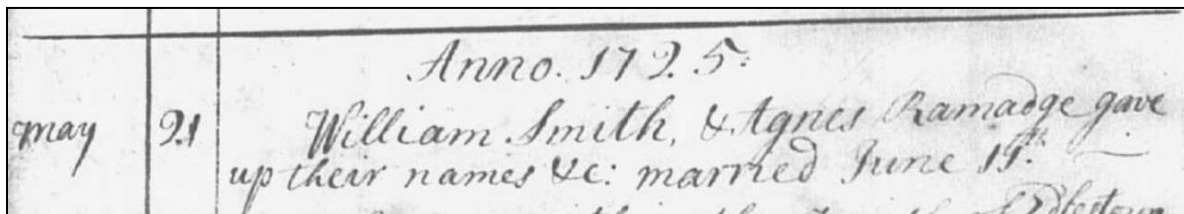 Anno. 1725.
may 21 William Smith, & Agnes Ramadge gave
up their names &c: married June 15.th